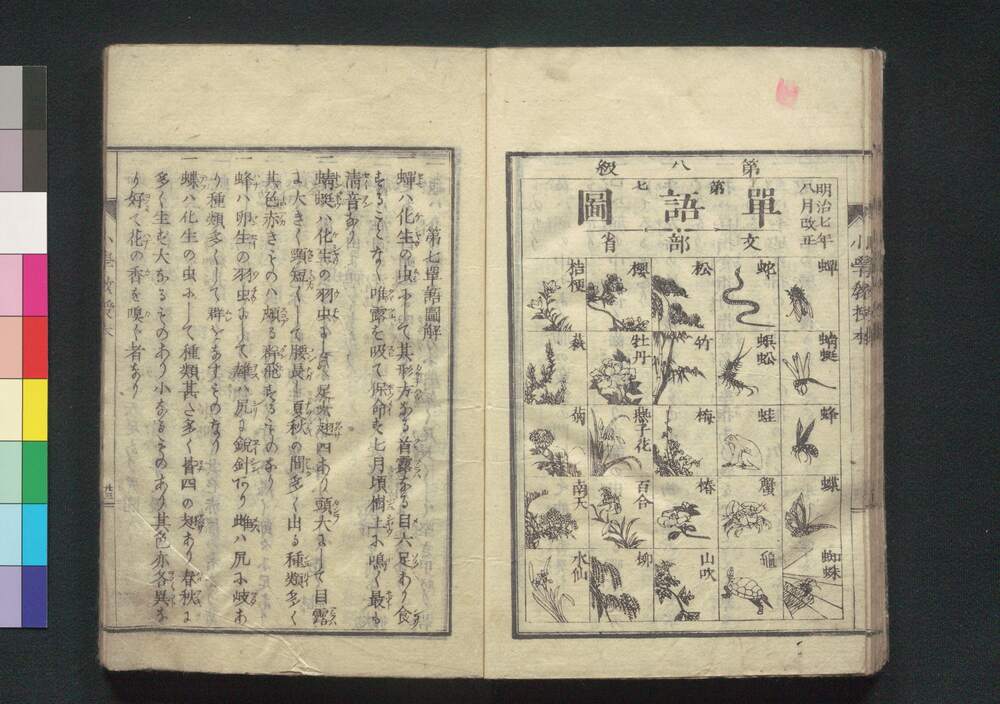 明治七年
八月改正
第八級
第七
單語圖
文部省
蟬
蜻蜓
蜂
蝶
蜘蛛
蛇
蜈蚣
蛙
蟹
龜
松
竹
梅
椿
山吹
櫻
牡丹
燕子花
百合
柳
桔梗
萩
菊
南天
水仙
第七單語圖解
一蟬ハ化生の虫にして其形方なる首露なる目六足あり食
することなく唯露を吸て保命す七月頃樹上に鳴く最も
淸音なり
一蜻蜓ハ化生の羽虫にして足六翅四あり頭大にして目露
に大きく頸短くして腰長し夏秋の間多く出る種類多く
其色赤きものハ頗る群飛するものなり
一蜂ハ卵生の羽虫にして雄ハ尻に銳針あり雌ハ尻に岐あ
り種類多くして群をなすものなり
一蝶ハ化生の虫にして種類甚だ多く皆四の翅あり春秋に
多く生ず大なるものあり小なるものあり其色亦各異な
り好て花の香を嗅ぐ者なり
廿三